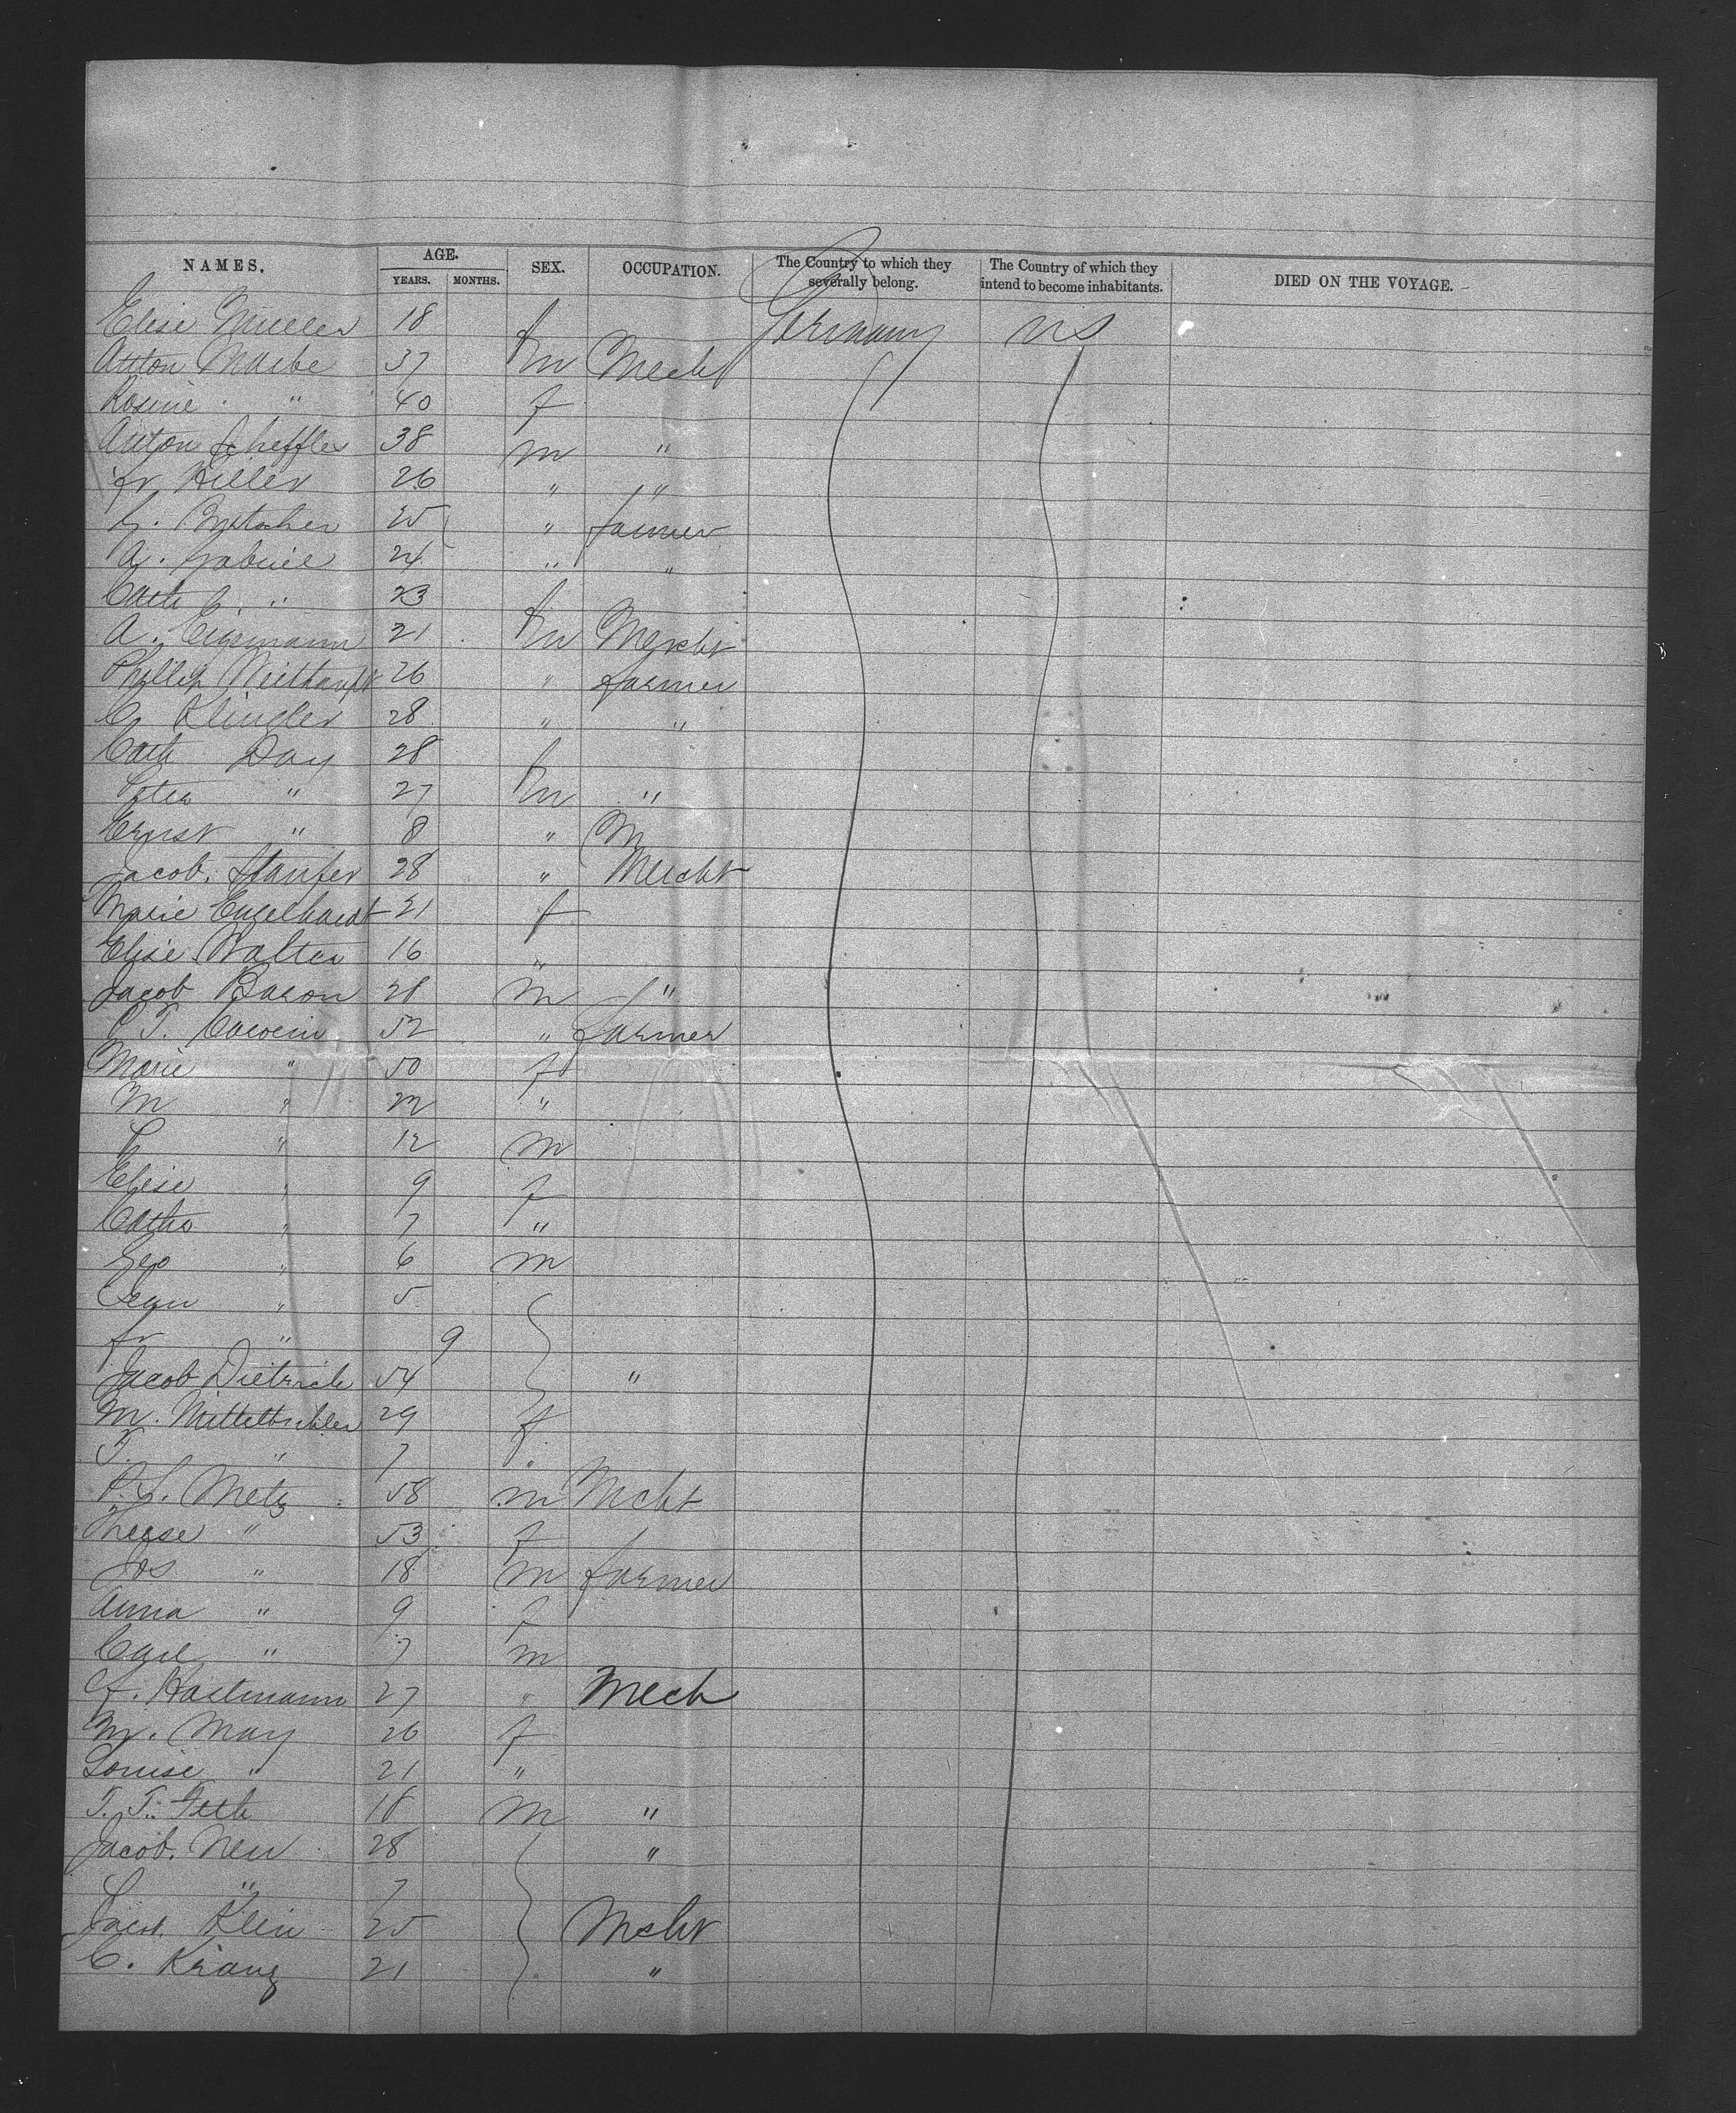 NAMES. AGE. YEARS. MONTHS. SEX. OCCUPATION. The Country to which they severally belong. The Country of which they intend to become inhabitants. DIED ON THE VOYAGE.
Elise Mueller 18 f Germany US
Anton 37 m Mecht
Rosine " 40 f
Anton Scheffler 38 m "
Fr Hiller 26 " "
25 " farmer
A. Gabriel 24 " "
Cath " 23 f
A. 21 m Mercht
Phillip 26 " farmer
C. Klingler 28 " "
Cath Day 28 f
Peter " 27 m "
Ernst " 8 " M
Jacob. Stanfer 28 " Mercht
Marie Engelhardt 21 f
Elise Walter 16 "
Jacob Baron 28 m "
52 " farmer
Marie " 50 f
M " 22 "
" 12 m
Elise " 9 f
Catha " 7 "
Geo " 6 m
" 5
Fr " 9
Jacob Dietrich 54 "
M. 29 f
T. " 7 "
P. S. Metz 58 m Mcht
" 53 f
Jos " 18 m farmer
Anna " 9 f
Carl " 7 m
F. Hartmann 27 " Mech
M. May 26 f
Louise " 21 "
T. T. Feth 18 m "
Jacob. Neu 28 "
" 7
Jacob. Klein 25 Mcht
C. Kranz 21 "